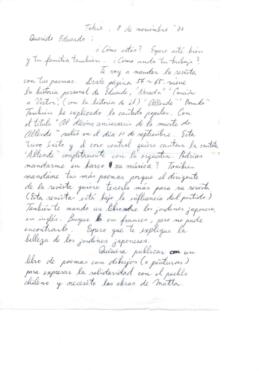 Tokio, 8 de noviembre '83
Querido Eduardo:
¿Cómo estás? Espero esté bien
y tu familia también. ¿Cómo anda tu trabajo?
Te voy a mandar la revista
con tus poemas. Desde página 57 a 65. viene
la historia personal de Eduardo, "Neruda" "Canción
a Victor", (con la historia de él) "Allende"
También he explicado la cantata popular. Con
el título "Al décimo aniversario de la muerte de
Allende" salió en el día 11 de septiembre. Esta
tuvo éxito y el coro central quiere cantar la cantata
"Allende" completamente con la orquesta. Podrías
mandarme su hora música? También
mandame tus más poemas porque el dirigente
de la revista quiere tenerla más para su revista
(Esta revista está bajo la influencia del partido)
También te mando un libro sobre los jardines japoneses
en inglés. Busqué en francés, pero no pude
encontrarlo. Espero que te explique la
belleza de los jardines japoneses.
Quisiera publicar un
libro de poemas con dibujos (o pinturas)
para expresar la solidaridad con el pueblo
chileno y necesito las obras de Matta